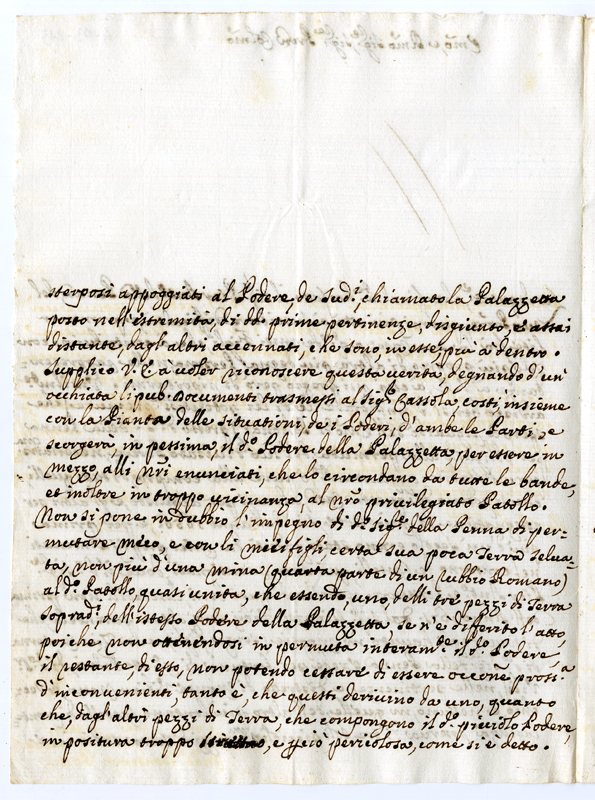 sterposi appoggiati al Podere, de Sud.i, chiamato la Palazzetta
posto nell'estremità, di dd. prime pertinenze, disgiunto, e assai
distante, dagl'altri accennati, che sono, in esse, più à dentro.
Supplico V. E. à voler riconoscere questa verità, degnando d'un'
occhiata li pub. Documenti trasmessi al Sig.r Cassola, costì, insieme
con la Pianta delle situationi, de i Poderi, d'ambe le Parti, e
scorgerà, in pessima, il d.o Podere, della Palazzetta, per essere in
mezzo, alli nr̃i enunciati, che lo circondano da tutte le bande,
et inoltre in troppo vicinanza, al nr̃o privilegiato Patollo.
Non si pone in dubbio l'impegno di d.o Sig.r della Penna di per-
mutare meco, e con li miei figli, certa sua poca Terra selua-
ta, non più d'una mina (quarta parte di un rubbio Romano)
al d.o Patollo, quasi unita, che essendo, uno, delli tre pezzi di Terra
soprad.i, dell'istesso Podere della Palazzetta, se n'è differito l'atto,
poiche non ottinendosi in permuta interam.te il d.o Podere,
il restante, di esso, non potendo cessare di essere occone pross.a
d'inconvenienti, tanto è, che questi derivino da uno, quanto
che, dagl'altri pezzi di Terra, che compongono il d.o picciolo Podere,
in positura troppo, e p ciò pericolosa, come si è detto.